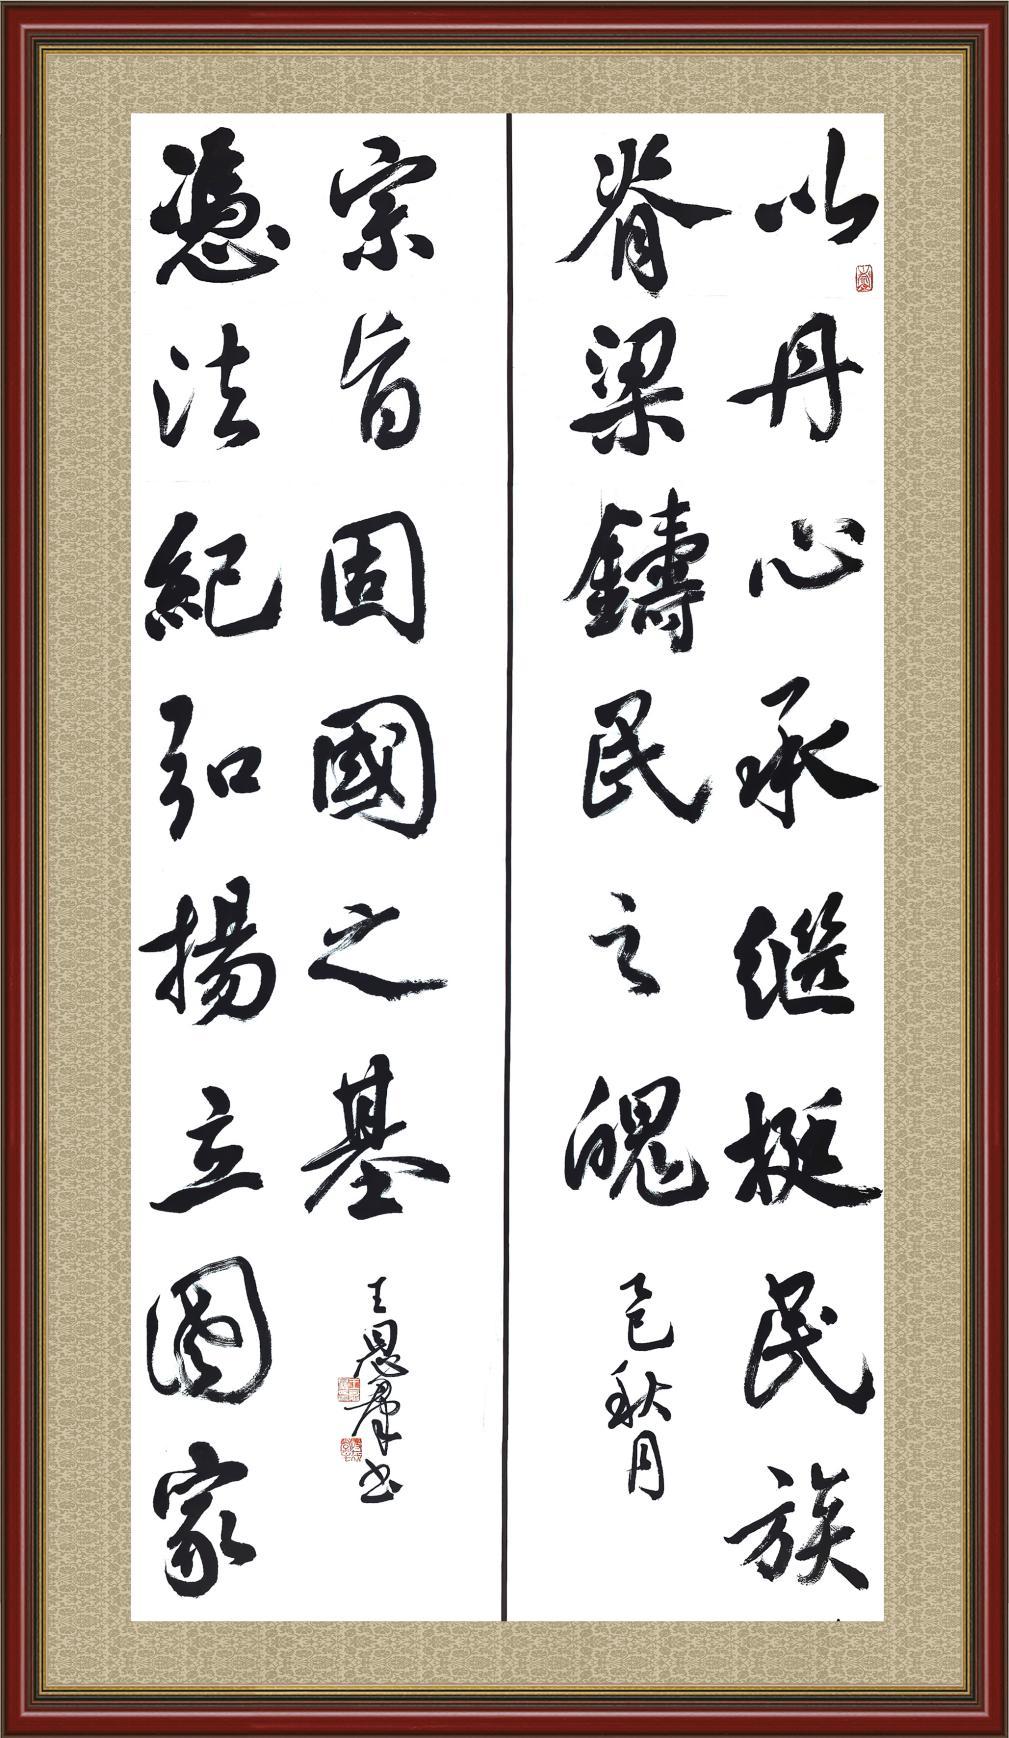 以丹心承继挺民族
脊梁鑄民之魄
乙巳秋月
憑法紀弘揚立國家
宗旨固國之基
王恩羣书